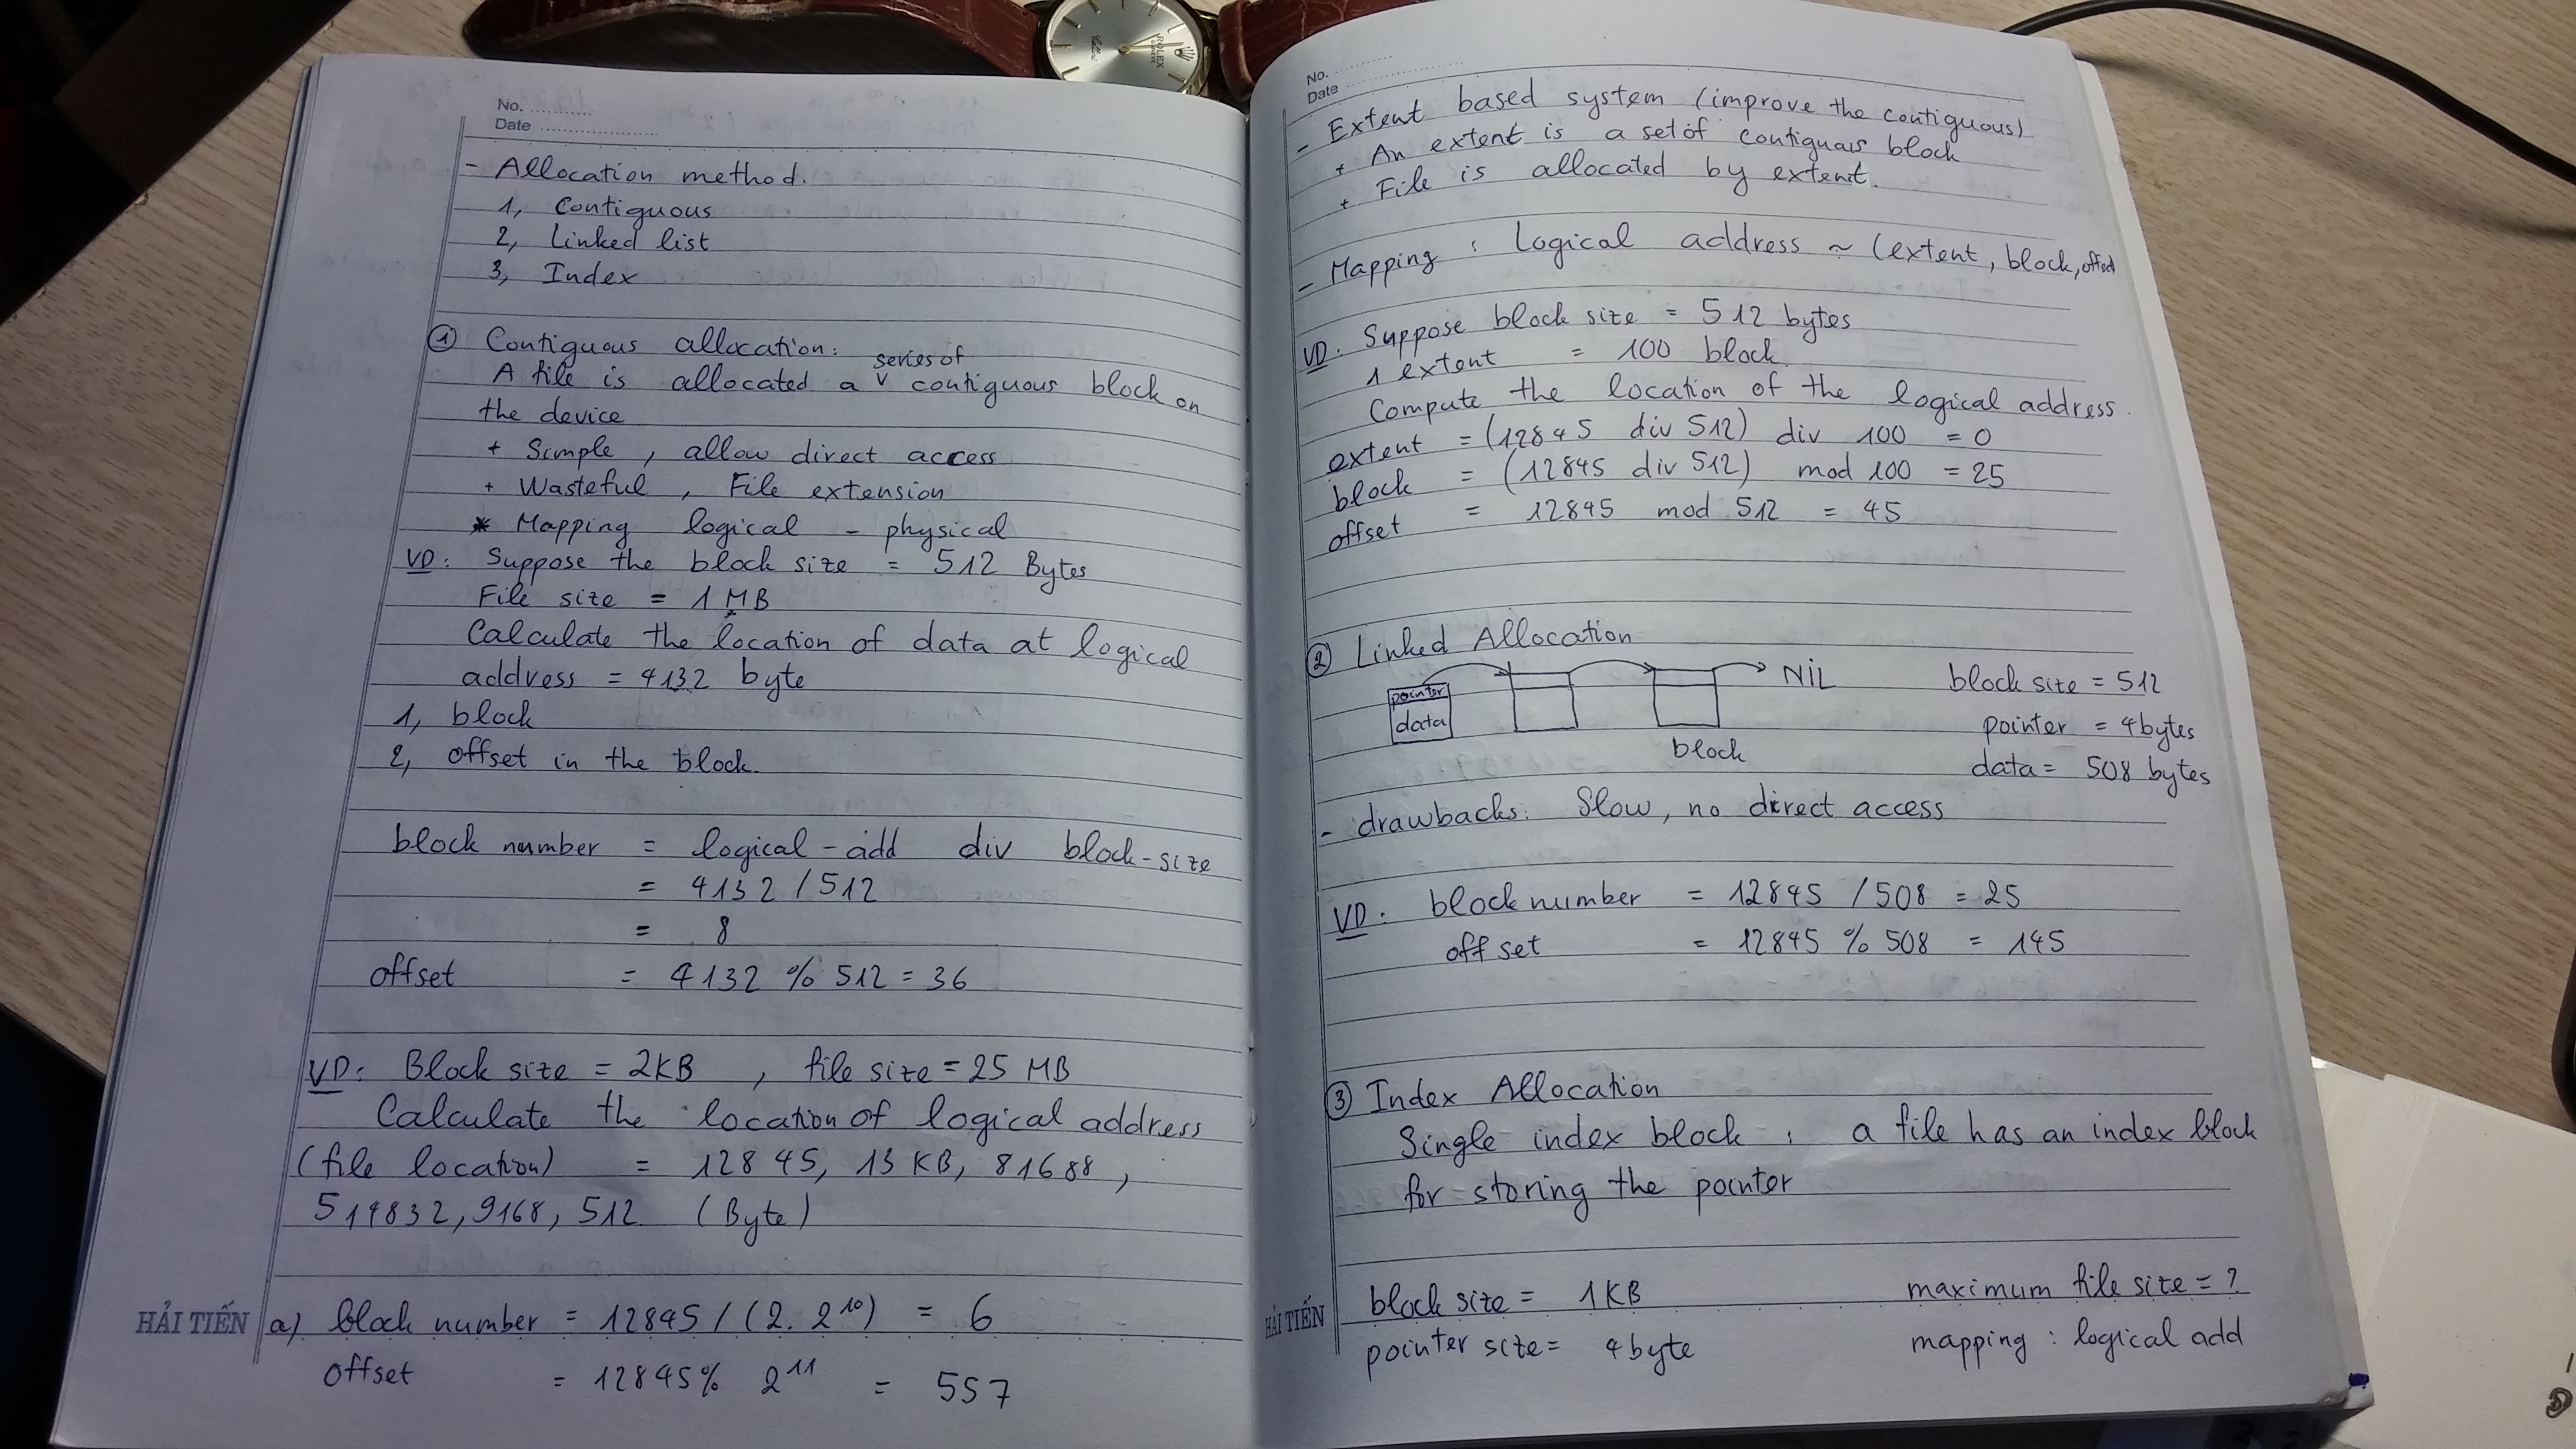 No.
Date
- Allocation method.
1, Contiguous
2, Linked list
3, Index
① Contiguous allocation:
A file is allocated a series of contiguous block on
the device
+ Simple, allow direct access
+ Wasteful, File extension
* Mapping logical - physical
VD: Suppose the block size = 512 Bytes
File size = 1 MB
Calculate the location of data at logical
address = 4132 byte
1, block
2, offset in the block.
block number = logical-add div block-size
= 4132 / 512
= 8
offset = 4132 % 512 = 36
VD: Block size = 2KB, file size = 25 MB
Calculate the location of logical address
(file location) = 12845, 13 KB, 81688,
519832, 9168, 512 (Byte)
a) block number = 12845 / (2. 2^10) = 6
offset = 12845 % 2^11 = 557
HẢI TIẾN
No.
Date
- Extent based system (improve the contiguous)
+ An extent is a set of contiguous block
+ File is allocated by extent.
- Mapping : Logical address ~ (extent, block, offset
VD: Suppose block size = 512 bytes
1 extent = 100 block
Compute the location of the logical address.
extent = (12845 div 512) div 100 = 0
block = (12845 div 512) mod 100 = 25
offset = 12845 mod 512 = 45
② Linked Allocation
pointer
data
NiL
block
block size = 512
pointer = 4bytes
data = 508 bytes
- drawbacks: Slow, no direct access
VD: block number = 12845 / 508 = 25
offset = 12845 % 508 = 145
③ Index Allocation
Single index block : a file has an index block
for storing the pointer
block size = 1 KB maximum file size = ?
pointer size = 4 byte mapping : logical add
HẢI TIẾN
ROLEX